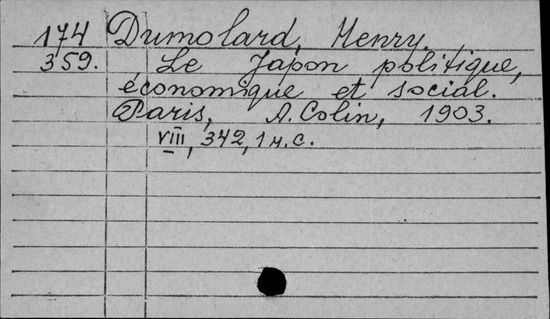 174 Dumolard, Henry.
359. Le Japon politique,
économique et social.
Paris, A. Colin, 1903.
VIII, 342, 1 н. с.